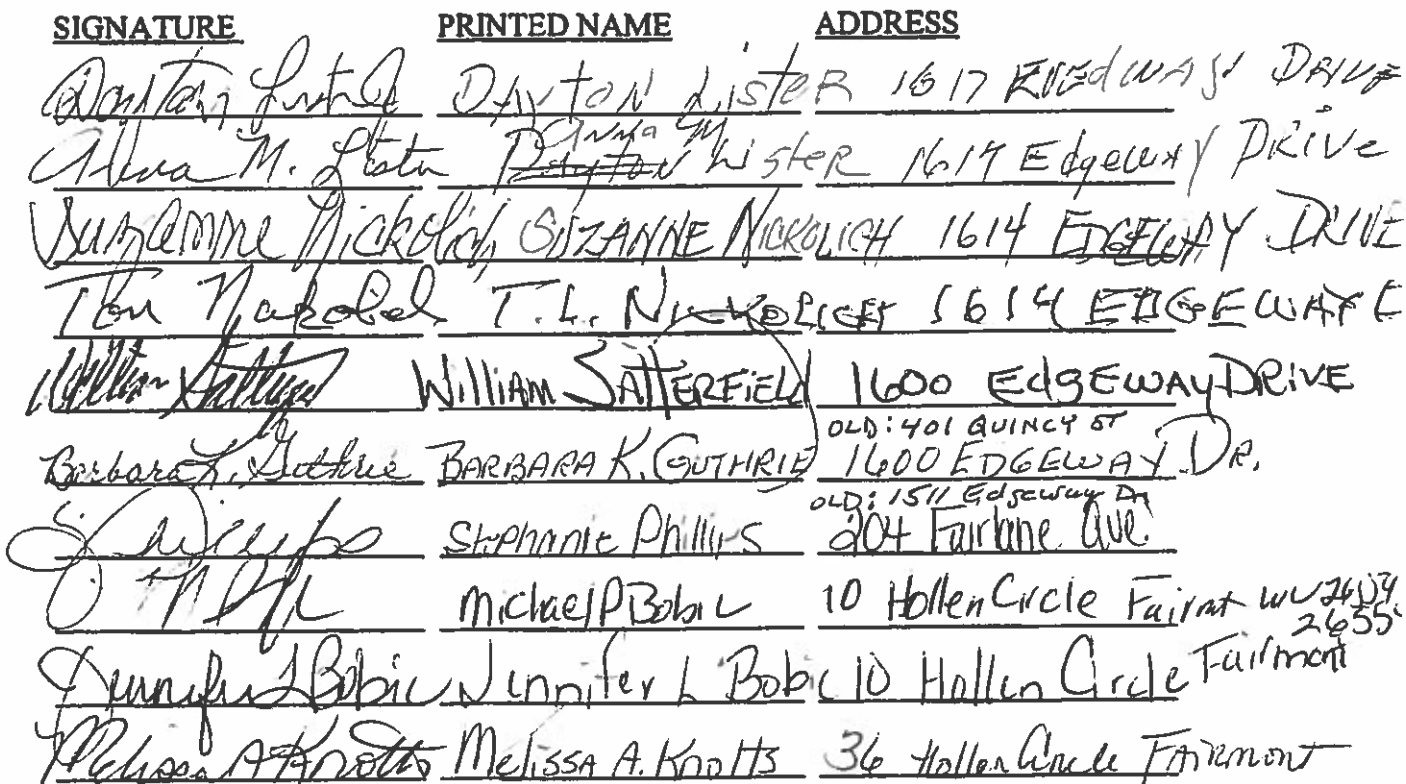 SIGNATURE PRINTED NAME ADDRESS
Dayton Lister DAYTON LISTER 1617 EDGEWAY DRIVE
M. Lister Anna M Dayton Lister 1617 Edgeway DRIVE
Suzanne Nickolich SUZANNE NICKOLICH 1614 EDGEWAY DRIVE
Tom Nickolich T.L. NICKOLICH 1614 EDGEWAY
William Satterfield WILLIAM SATTERFIELD 1600 EdgEWAY DRIVE
OLD: 401 QUINCY ST
Barbara K. Guthrie BARBARA K. GUTHRIE 1600 EDGEWAY DR.
OLD: 1511 Edgeway Dr
Stephanie Phillips 204 Fairlane Ave.
Michael P Bobic 10 Hollen Circle Fairmont WV
Jennifer L Bobic Jennifer L Bobic 10 Hollen Circle Fairmont
Melissa A Knotts Melissa A. Knotts 36 Hollen Circle FAIRMONT